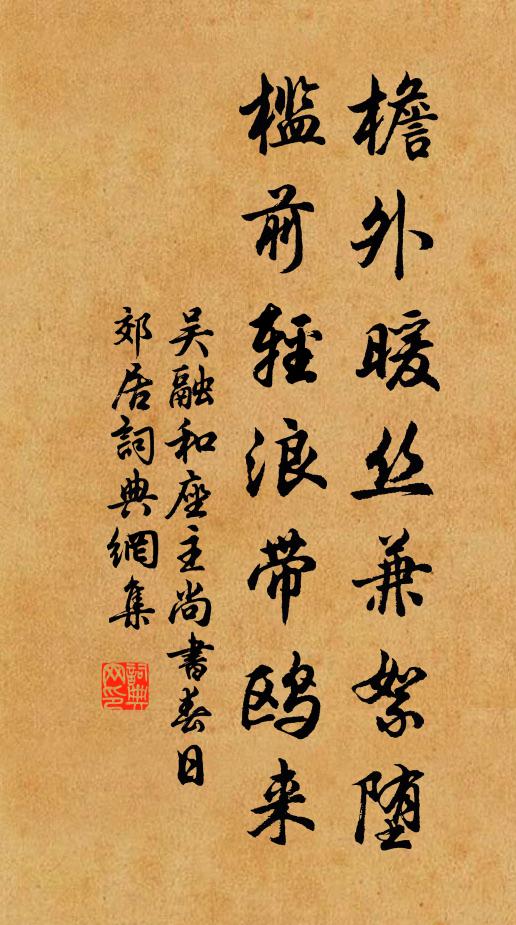 檐外暖丝兼絮堕
槛前輕浪带鸥来
吴融和座主尚書春日
郊居詞典網集
詞典网印